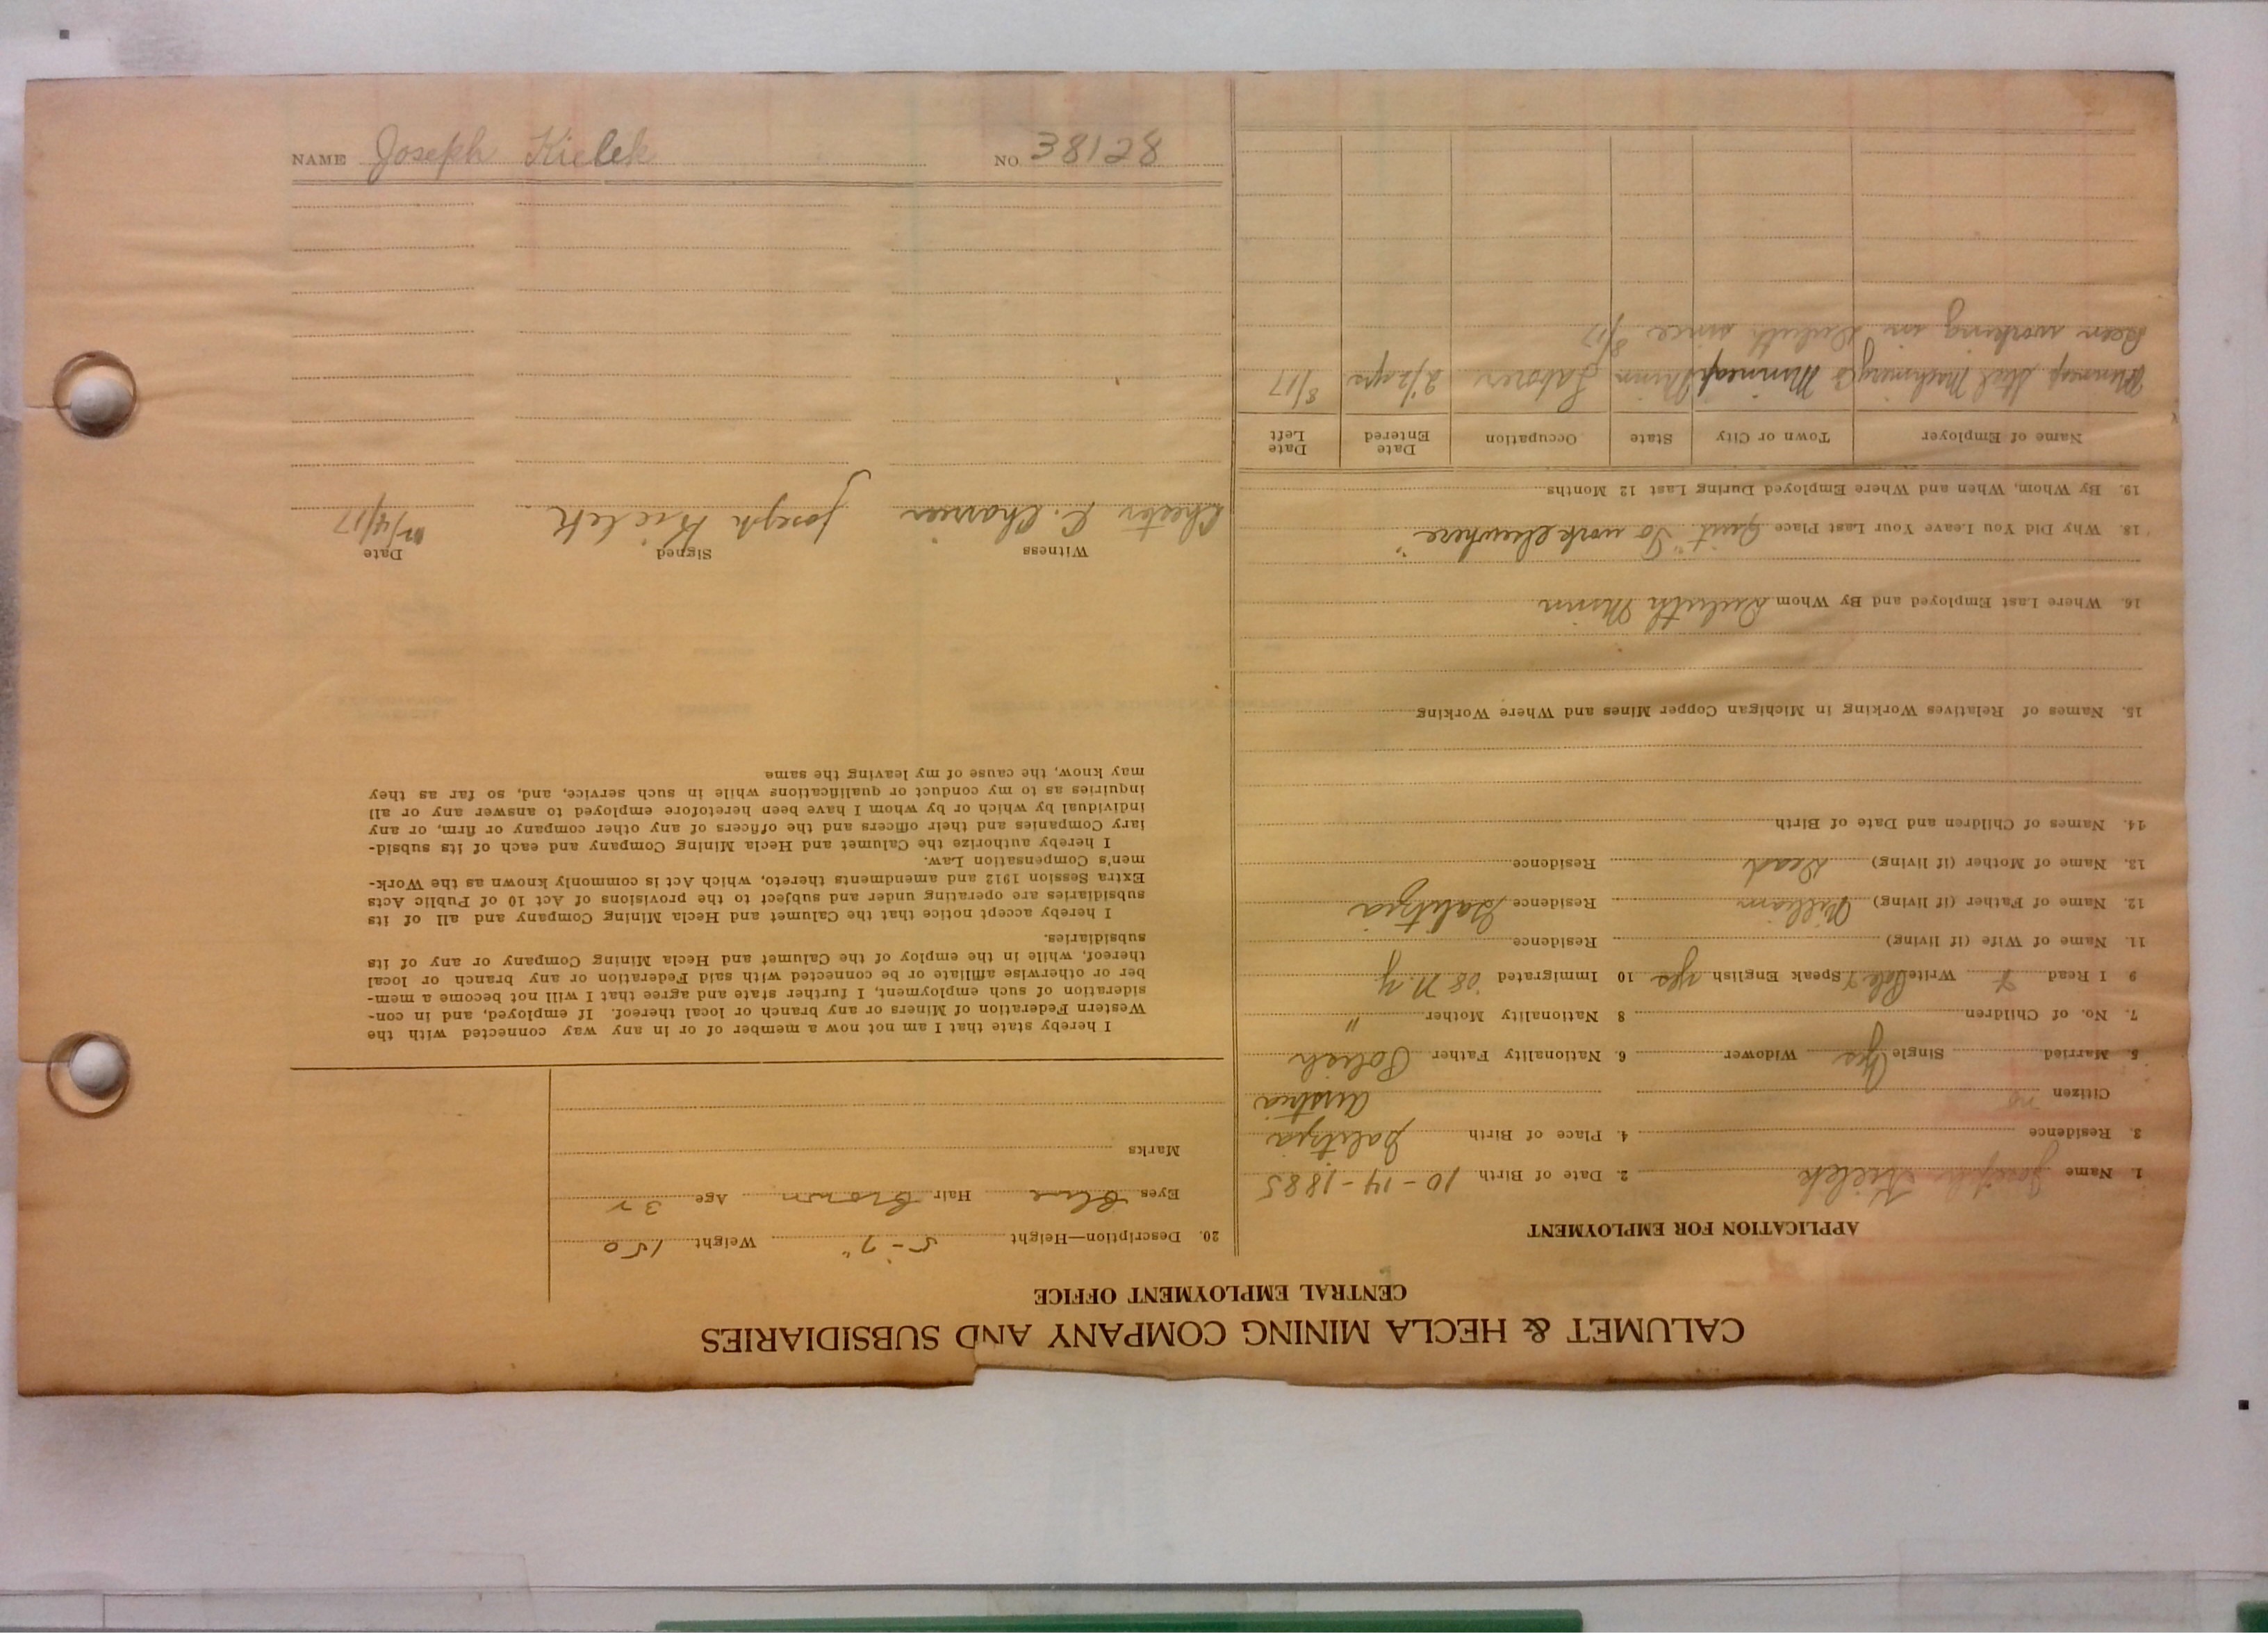 NAME Joseph Kielek NO. 38128
CALUMET & HECLA MINING COMPANY AND SUBSIDIARIES
CENTRAL EMPLOYMENT OFFICE
APPLICATION FOR EMPLOYMENT
1. Name Joseph Kielek 2. Date of Birth 10-14-1885
3. Residence 4. Place of Birth Galitzia
Citizen no Austria
5 Married Single Yes Widower 6. Nationality Father Polish
7. No. of Children 8 Nationality Mother "
9 I Read Write Pole Speak English yes 10 Immigrated '08 N.Y
11. Name of Wife (if living) Residence
12. Name of Father (if living) William Residence Galitzia
13. Name of Mother (if living) Dead Residence
14. Names of Children and Date of Birth
15. Names of Relatives Working in Michigan Copper Mines and Where Working
16. Where Last Employed and By Whom Duluth Minn
18. Why Did You Leave Your Last Place Quit "To work elsewhere"
19. By Whom, When and Where Employed During Last 12 Months
Name of Employer Town or City State Occupation Date Entered Date Left
Minneap Steel Machinery Co Minneap Minn Laborer 2 1/2 yrs 8/17
Been working in Duluth since 8/17
20. Description—Height 5-7" Weight 150
Eyes Blue Hair Brown Age 32
Marks
I hereby state that I am not now a member of or in any way connected with the
Western Federation of Miners or any branch or local thereof. If employed, and in con-
sideration of such employment, I further state and agree that I will not become a mem-
ber or otherwise affiliate or be connected with said Federation or any branch or local
thereof, while in the employ of the Calumet and Hecla Mining Company or any of its
subsidiaries.
I hereby accept notice that the Calumet and Hecla Mining Company and all of its
subsidiaries are operating under and subject to the provisions of Act 10 of Public Acts
Extra Session 1912 and amendments thereto, which Act is commonly known as the Work-
men's Compensation Law.
I hereby authorize the Calumet and Hecla Mining Company and each of its subsid-
iary Companies and their officers and the officers of any other company or firm, or any
individual by which or by whom I have been heretofore employed to answer any or all
inquiries as to my conduct or qualifications while in such service, and, so far as they
may know, the cause of my leaving the same
Witness Signed Date
Chester C. Joseph Kielek /4/17